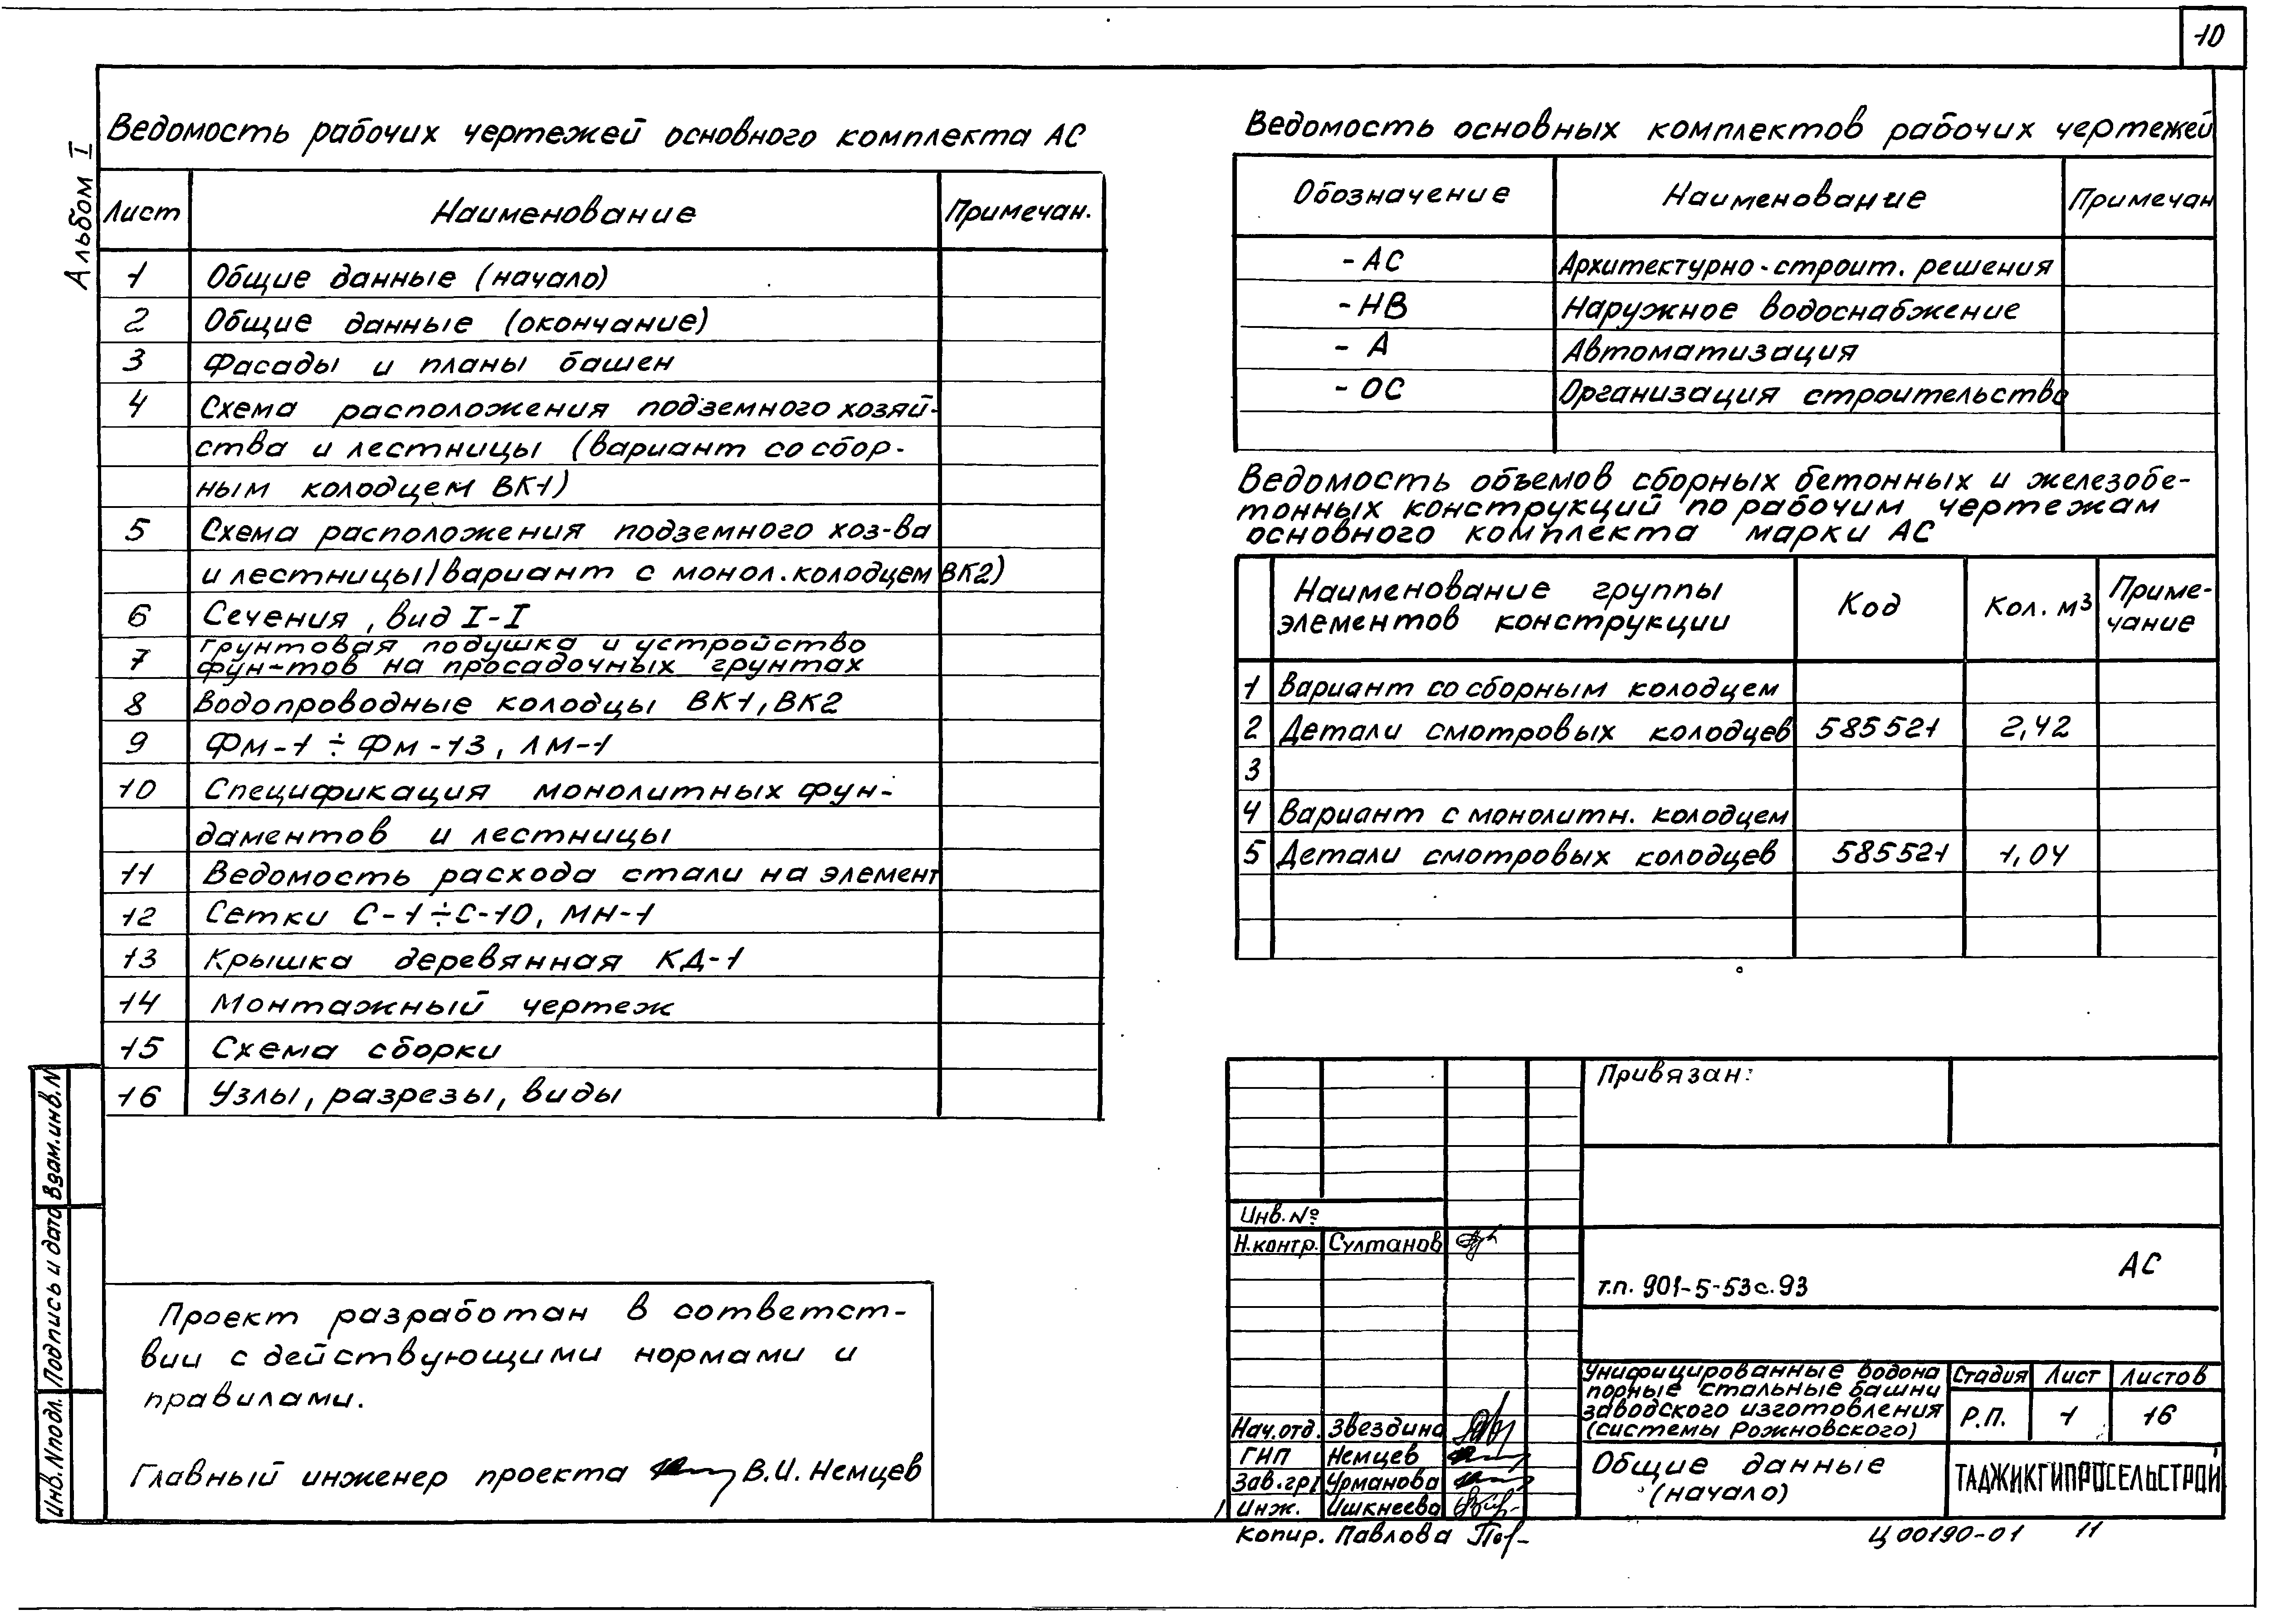 10
Альбом I
Ведомость рабочих чертежей основного комплекта АС
Лист Наименование Примечан.
1 Общие данные (начало)
2 Общие данные (окончание)
3 Фасады и планы башен
4 Схема расположения подземного хозяй-
ства и лестницы (вариант со сбор-
ным колодцем ВК1)
5 Схема расположения подземного хоз-ва
и лестницы/вариант с монол. колодцем ВК2)
6 Сечения, вид I-I
7 Грунтовая подушка и устройство
фун-тов на просадочных грунтах
8 Водопроводные колодцы ВК1, ВК2
9 Фм-1 ÷ Фм-13, ЛМ-1
10 Спецификация монолитных фун-
даментов и лестницы
11 Ведомость расхода стали на элемент
12 Сетки С-1÷С-10, МН-1
13 Крышка деревянная КД-1
14 Монтажный чертеж
15 Схема сборки
16 Узлы, разрезы, виды
Проект разработан в соответст-
вии с действующими нормами и
правилами.
Главный инженер проекта В.И. Немцев
Взам.инв.N
Подпись и дата
Инв.Nподл.
Ведомость основных комплектов рабочих чертежей
Обозначение Наименование Примечан
- АС Архитектурно-строит. решения
- НВ Наружное водоснабжение
- А Автоматизация
- ОС Организация строительства
Ведомость объемов сборных бетонных и железобе-
тонных конструкций по рабочим чертежам
основного комплекта марки АС
Наименование группы
элементов конструкции Код Кол. м3 Приме-
чание
1 Вариант со сборным колодцем
2 Детали смотровых колодцев 585521 2,42
3
4 Вариант с монолитн. колодцем
5 Детали смотровых колодцев 585521 1,04
Привязан:
Инв. №
Н.контр. Султанов
т.п. 901-5-53с.93 АС
Унифицированные водона
порные стальные башни
заводского изготовления
(системы Рожновского)
Стадия Лист Листов
Р.П. 1 16
Нач.отд. Звездина
ГНП Немцев
Зав.гр Урманова
Инж. Ишкнеева
Общие данные
(начало)
ТАДЖИКГИПРОСЕЛЬСТРОЙ
Копир. Павлова
Ц 00190-01 11